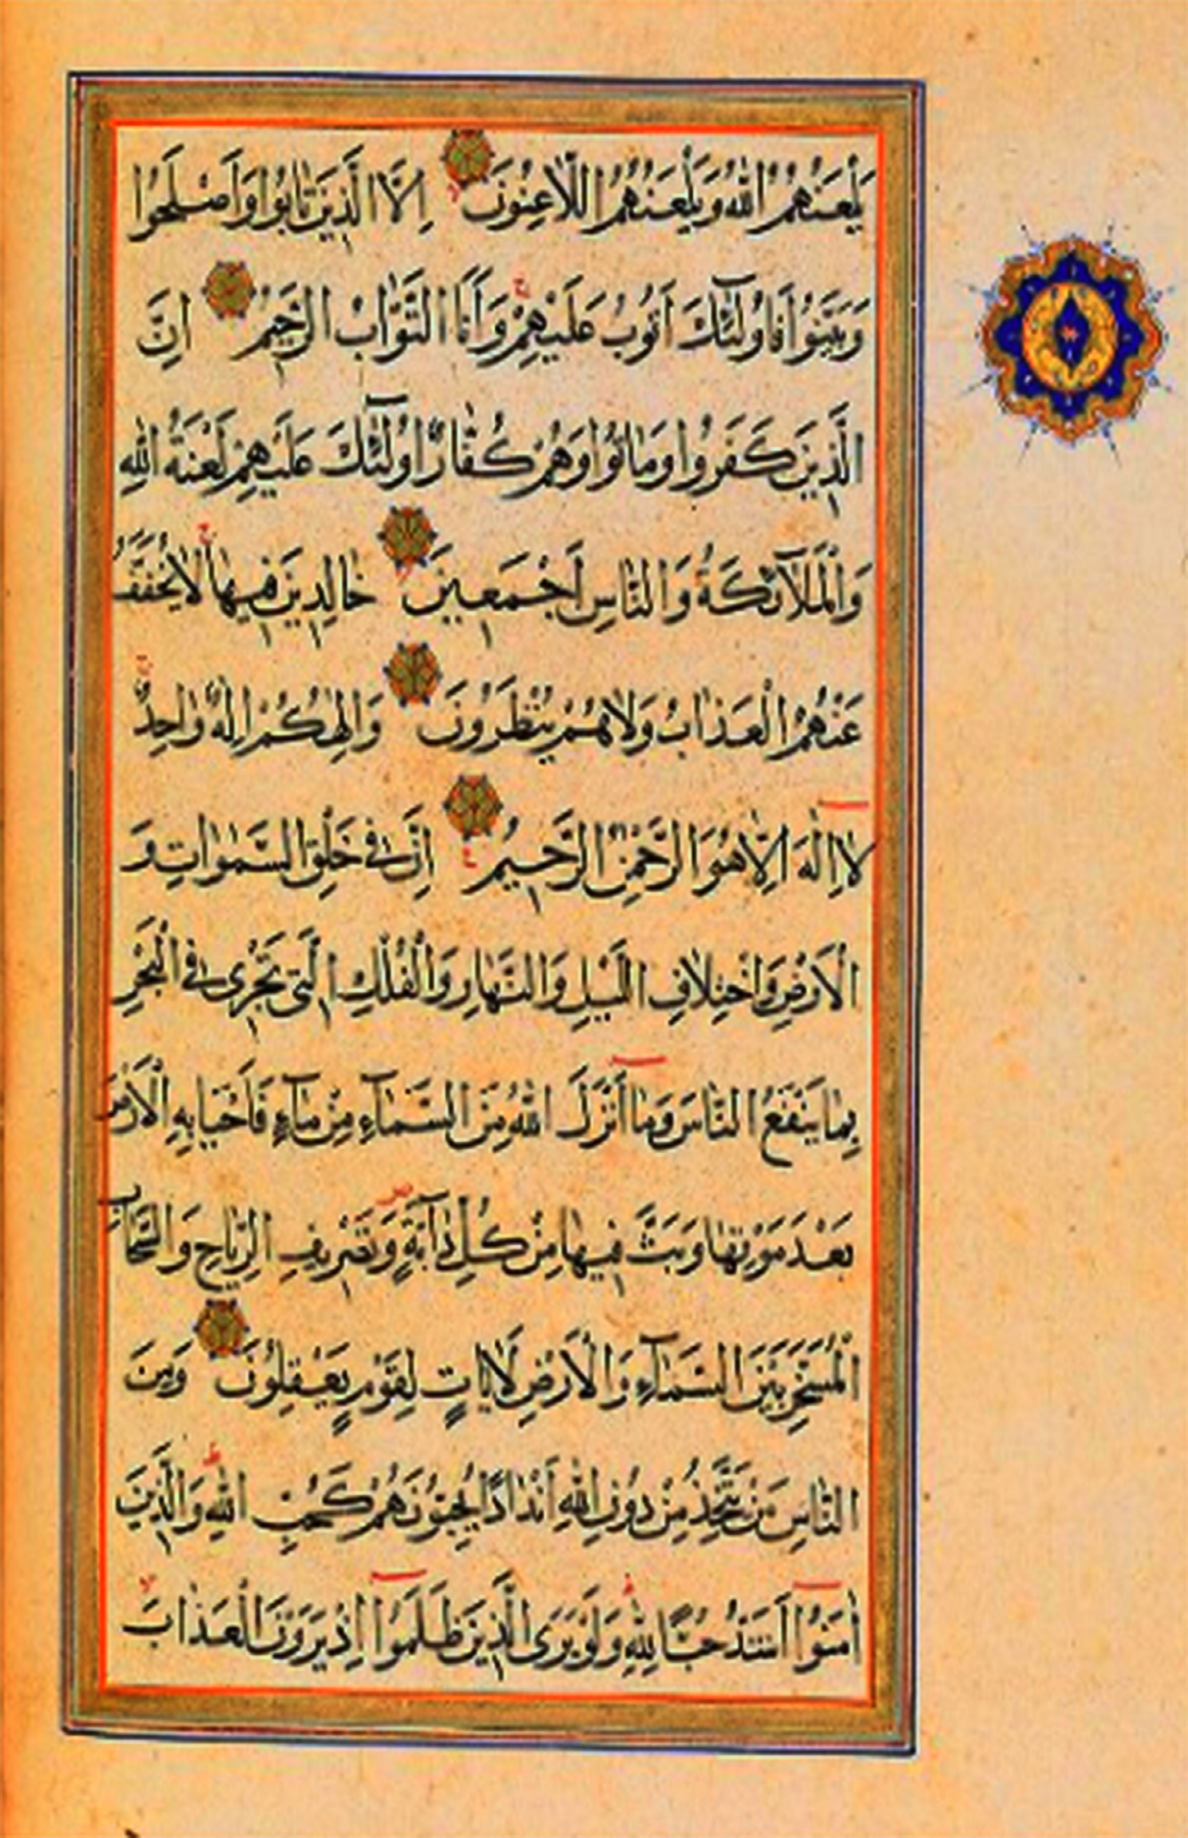 يَلْعَنُهُمُ اللّٰهُ وَيَلْعَنُهُمُ اللَّاعِنُونَ اِلَّا الَّذِينَ تَابُوا وَاَصْلَحُوا
وَبَيَّنُوا فَاُولٰٓئِكَ اَتُوبُ عَلَيْهِمْ وَاَنَا التَّوَّابُ الرَّحِيمُ اِنَّ
الَّذِينَ كَفَرُوا وَمَاتُوا وَهُمْ كُفَّارٌ اُولٰٓئِكَ عَلَيْهِمْ لَعْنَةُ اللّٰهِ
وَالْمَلَآئِكَةِ وَالنَّاسِ اَجْمَعِينَ خَالِدِينَ فِيهَا لَا يُخَفَّفُ
عَنْهُمُ الْعَذَابُ وَلَا هُمْ يُنْظَرُونَ وَاِلٰهُكُمْ اِلٰهٌ وَاحِدٌ
لَا اِلٰهَ اِلَّا هُوَ الرَّحْمٰنُ الرَّحِيمُ اِنَّ فِي خَلْقِ السَّمٰوَاتِ وَ
الْاَرْضِ وَاخْتِلَافِ اللَّيْلِ وَالنَّهَارِ وَالْفُلْكِ الَّتِي تَجْرِي فِي الْبَحْرِ
بِمَا يَنْفَعُ النَّاسَ وَمَا اَنْزَلَ اللّٰهُ مِنَ السَّمَآءِ مِنْ مَآءٍ فَاَحْيَا بِهِ الْاَرْضَ
بَعْدَ مَوْتِهَا وَبَثَّ فِيهَا مِنْ كُلِّ دَآبَّةٍ وَتَصْرِيفِ الرِّيَاحِ وَالسَّحَابِ
الْمُسَخَّرِ بَيْنَ السَّمَآءِ وَالْاَرْضِ لَاٰيَاتٍ لِقَوْمٍ يَعْقِلُونَ وَمِنَ
النَّاسِ مَنْ يَتَّخِذُ مِنْ دُونِ اللّٰهِ اَنْدَادًا يُحِبُّونَهُمْ كَحُبِّ اللّٰهِ وَالَّذِينَ
اٰمَنُوا اَشَدُّ حُبًّا لِلّٰهِ وَلَوْ يَرَى الَّذِينَ ظَلَمُوا اِذْ يَرَوْنَ الْعَذَابَ